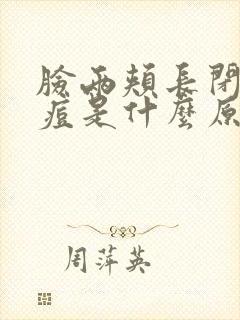 臉兩頰長閉
痘是什麼原
周萍英